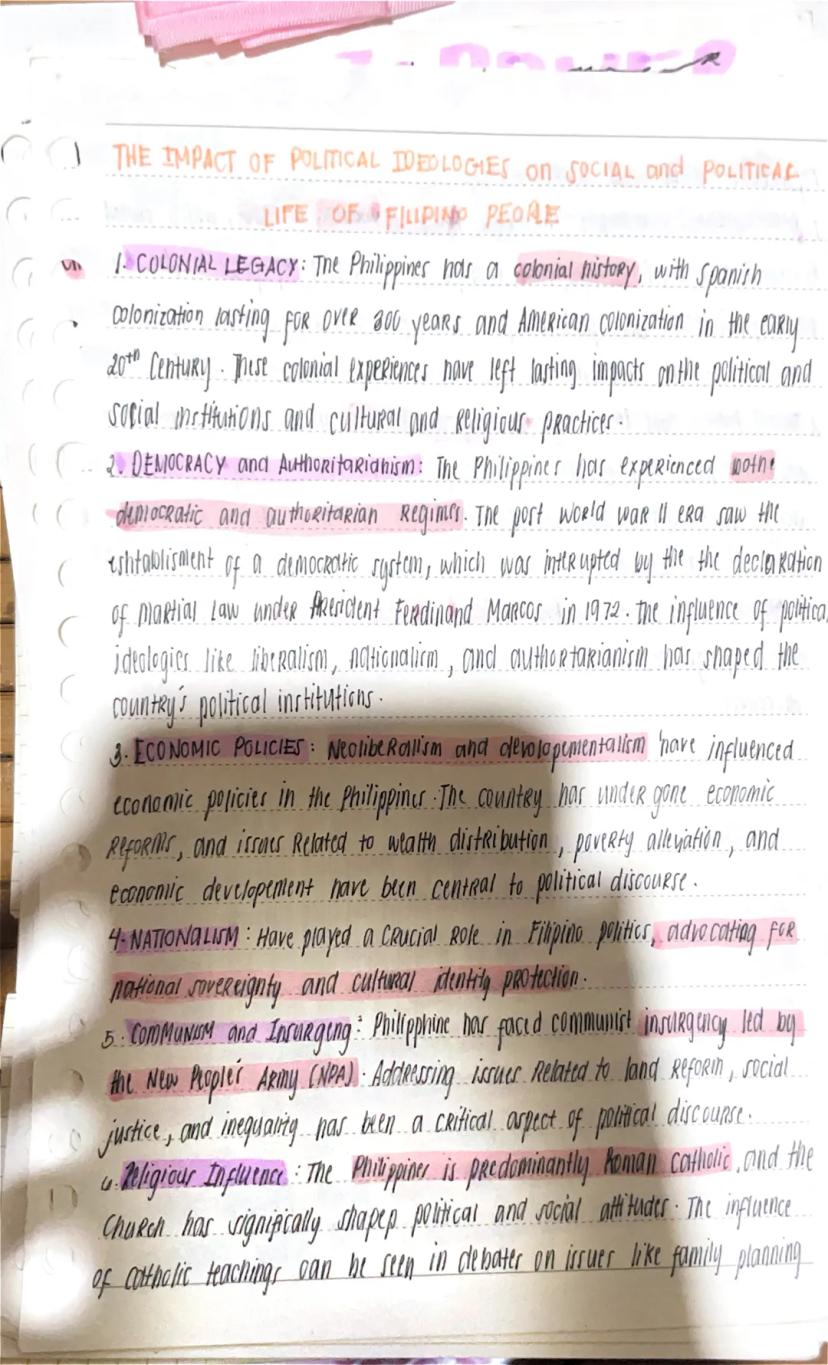 THE IMPACT OF POLITICAL IDEOLOGIES on SOCIAL and POLITICAL
LIFE OF FILIPINO PEOPLE
1. COLONIAL LEGACY: The Philippines has a colonial history, with Spanish
colonization lasting for over 300 years and American colonization in the early
20th Century. These colonial experiences have left lasting impacts on the political and
social institutions and cultural and Religious practices.
2. DEMOCRACY and Authoritarianism: The Philippines has experienced both
democratic and authoritarian Regimes. The post world war II era saw the
eshtablisment of a democratic system, which was interupted by the the declaration
of martial Law under President Ferdinand Marcos in 1972. The influence of politica
ideologies like liberalism, nationalism, and authortarianism has shaped the
country's political institutions.
3. ECONOMIC POLICIES: Neoliberallism and devolopementalism have influenced
economic policies in the Philippines. The country has under gone economic
Reforms, and issues Related to wealth distribution, poverty alleviation, and
economic developement have been central to political discourse.
4. NATIONALISM: Have played a crucial Role in Filipino politics, advocating for
national sovereignty and cultural identity protection.
5. COMMUNISM and Insurgeng: Philipphine has faced communist insurgency led by
the New People's Army (NPA). Addressing issues Related to land Reform, social
justice, and inequality has been a critical aspect of political discourse.
6. Religious Influence: The Philippines is predominantly Roman catholic, and the
Church has significally shaped political and social attitudes. The influence
of catholic teachings can be seen in debates on issues like family planning